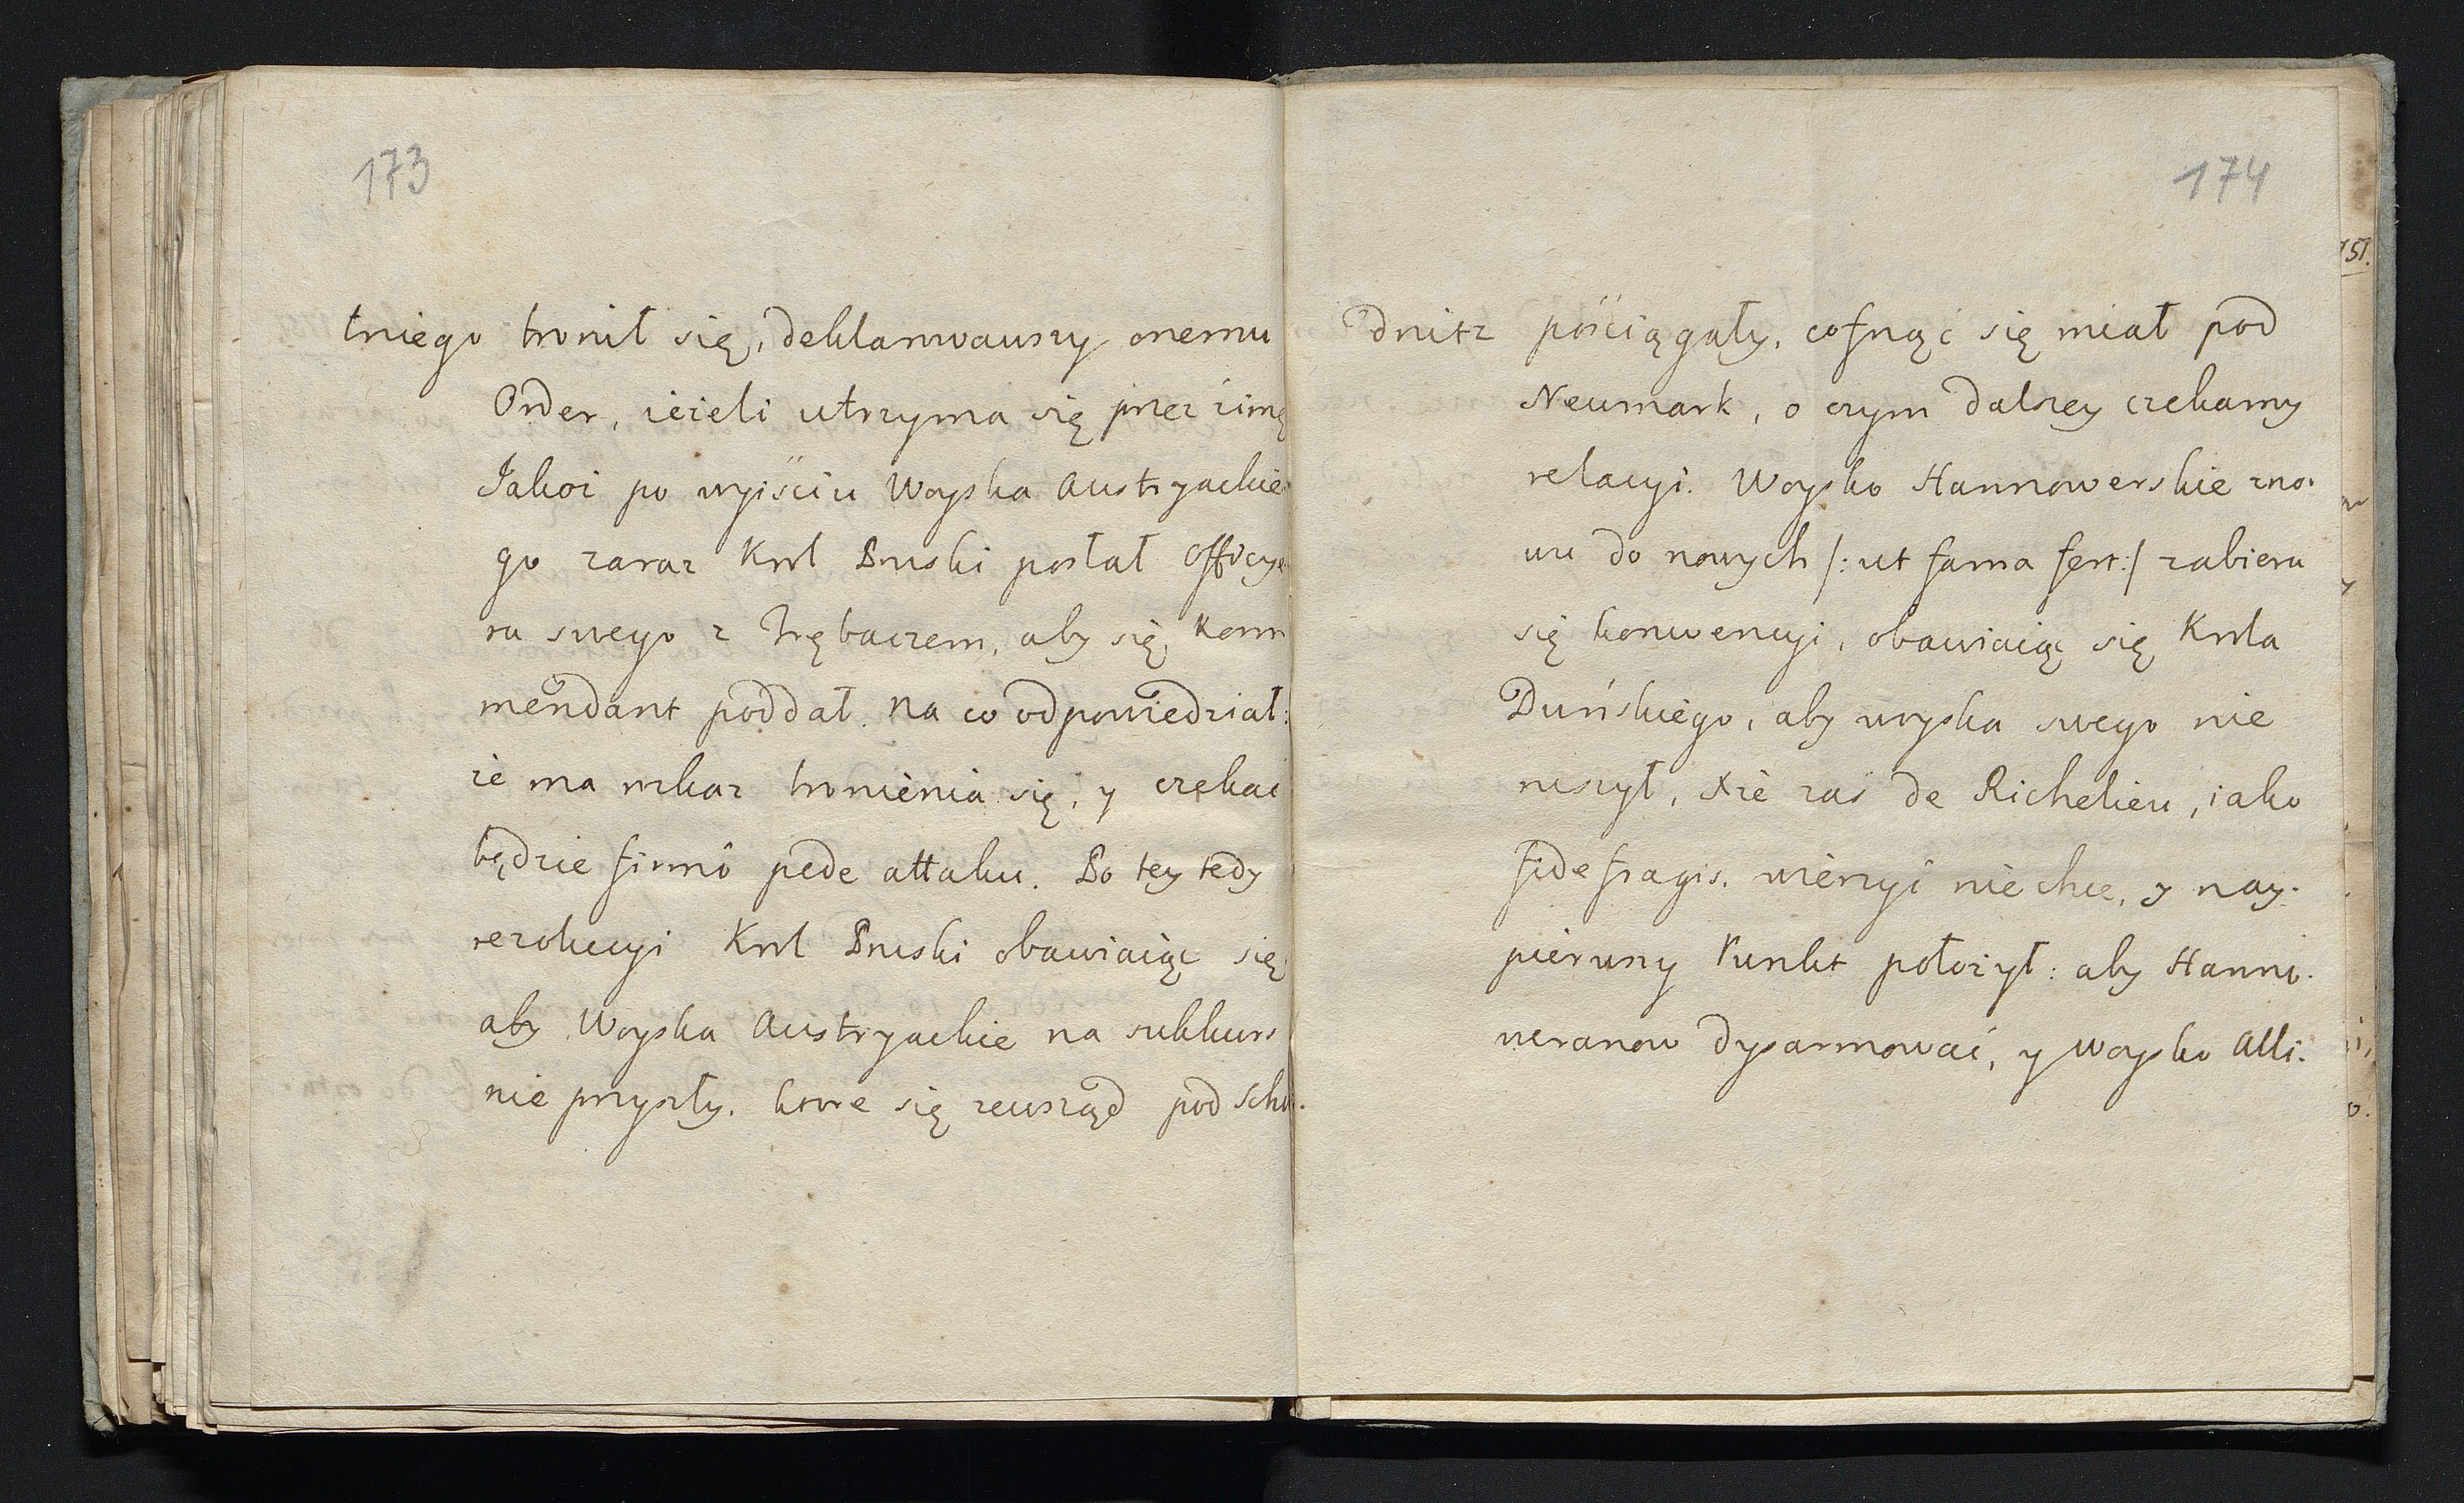 173
tniego bronił się, deklarowawszy onemu
Order, ieżeli utrzyma się przez zimę
Jakoż po wyiściu Woyska Austryackie-
go zaraz Krol Pruski posłał Officye-
ra swego z Trębaczem, aby się Kom
mendant poddał. Na co odpowiedział:
że ma rozkaz bronienia się, y czekać
będzie firmô pede attaku. Po tey tedy
rezolucyi Krol Pruski obawiaiąc się
aby Woyska Austryackie na sukkurs
nie przyszły. ktore się zewsząd pod Schw-
174
dnitz pościągały, cofnąć się miał pod
Neumark, o czym dalszey czekamy
relacyi. Woysko Hannowerskie zno-
wu do nowych /: ut fama fert :/ zabiera
się konwencyi, obawiaiąc się Krola
Duńskiego, aby woyska swego nie
ruszył, Xże zaś de Richelieu, iako
fide fragis. wierzyć nie chce, y nay-
pierwszy Punkt położył: aby Hanno-
weranow dyzarmować, y woysko Alli-
151.